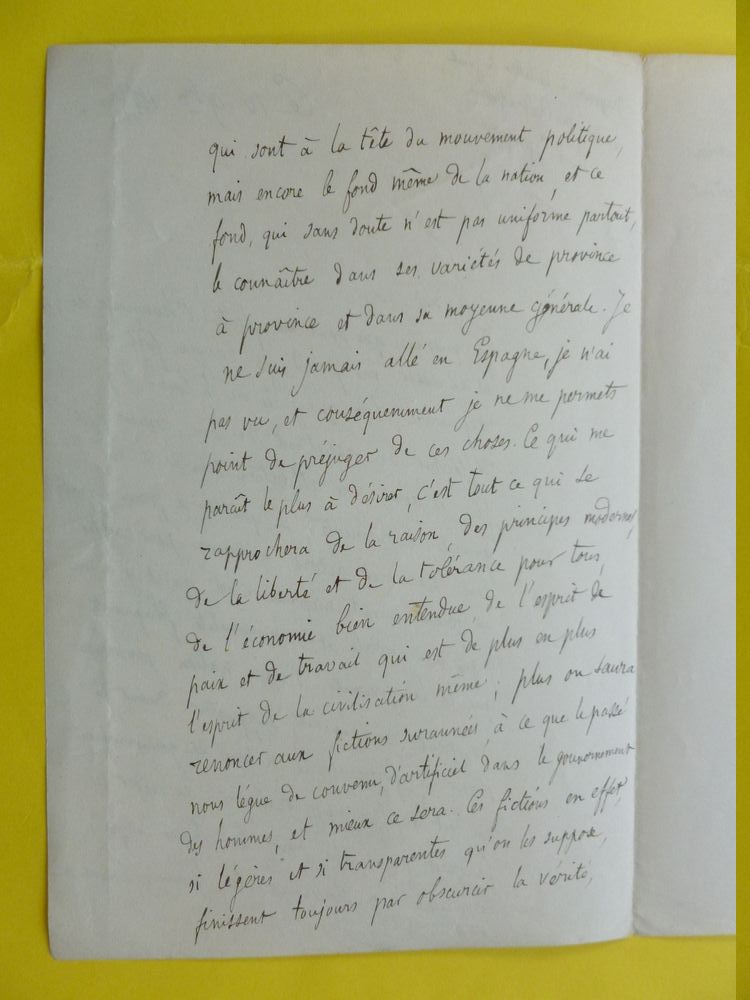 qui sont à la tête du mouvement politique,
mais encore le fond même de la nation, et ce
fond, qui sans doute n'est pas uniforme partout,
le connaître dans ses variétés de province
à province et dans sa moyenne générale. Je
ne suis jamais allé en Espagne, je n'ai
pas vu, et conséquemment je ne me permets
point de préjuger de ces choses. Ce qui me
paraît le plus à désirer, c'est tout ce qui se
rapprochera de la raison, des principes modernes
de la liberté et de la tolérance pour tous,
de l'économie bien entendue, de l'esprit de
paix et de travail qui est de plus en plus
l'esprit de la civilisation même; plus on saura
renoncer aux fictions surannées, à ce que le passé
nous lègue de convenu, d'artificiel dans le gouvernement
des hommes, et mieux ce sera. Ces fictions en effet,
si légères et si transparentes qu'on les suppose,
finissent toujours par obscurcir la vérité,